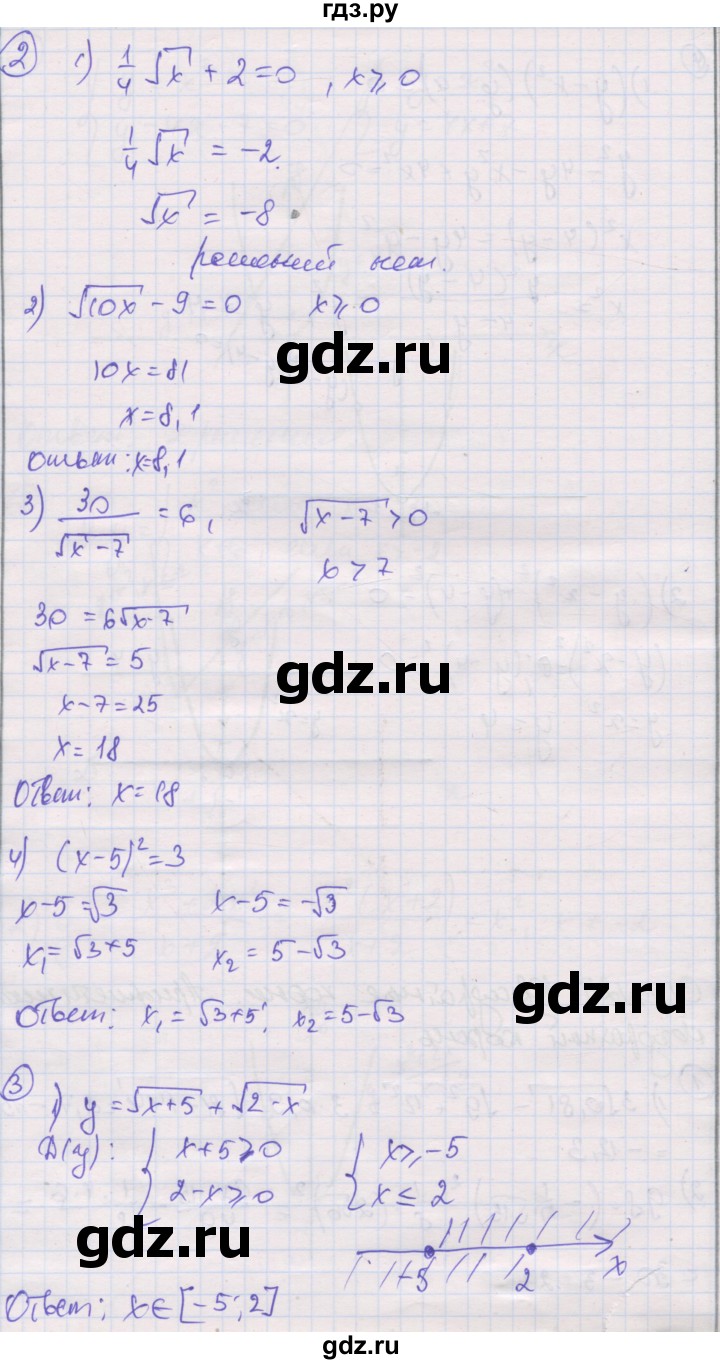 гдз.ру
2 1) 1/4 √x + 2 = 0 , x ⩾ 0
1/4 √x = -2.
√x = -8
решений нет.
2) √10x - 9 = 0 x ⩾ 0
gdz.ru
10x = 81
x = 8,1
Ответ: x = 8,1
3) 30/√x-7 = 6, √x-7 > 0
x > 7
30 = 6√x-7
√x-7 = 5
gdz.ru
x-7 = 25
x = 18
Ответ: x = 18
4) (x-5)² = 3
x-5 = √3 x-5 = -√3
x₁ = √3+5 x₂ = 5-√3
gdz.ru
Ответ: x₁ = √3+5; x₂ = 5-√3
3 1) y = √x+5 + √2-x
D(y): { x+5 ⩾ 0 { x ⩾ -5
2-x ⩾ 0 x ≤ 2
-5 2 x
Ответ: x ∈ [-5; 2]
gdz.ru